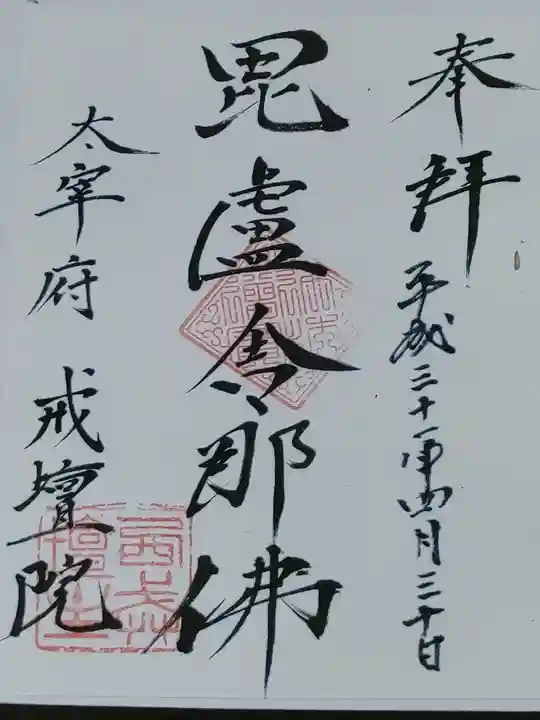 奉拝 平成三十一年四月三十日
毘盧舎那佛
太宰府 戒壇院